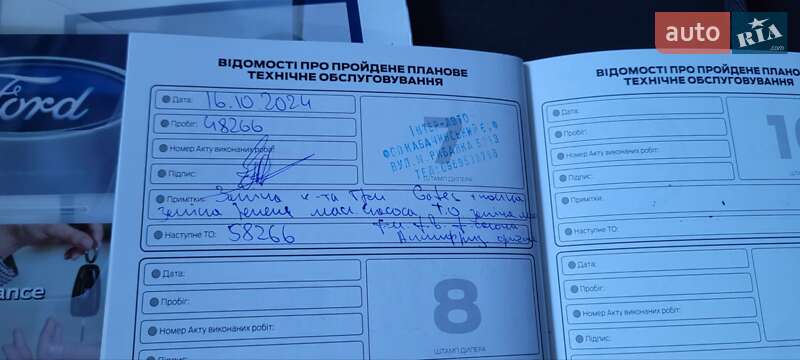 auto RIA.com
Ford
ance
ВІДОМОСТІ ПРО ПРОЙДЕНЕ ПЛАНОВЕ
ТЕХНІЧНЕ ОБСЛУГОВУВАННЯ
Дата: 16.10.2024
Пробіг: 48266
Номер Акту виконаних робіт:
Підпис:
7
ІНТЕР-АВТО
ШТАМП ДИЛЕРА
Примітки: Заміна к-та ГРМ Gates + помпа
заміна ременя насоса, Т.О заміна
Наступне ТО: 58266
Антифриз
Дата:
Пробіг:
Номер Акту виконаних робіт:
Підпис:
8
ШТАМП ДИЛЕРА
ВІДОМОСТІ ПРО ПРОЙДЕНЕ ПЛАНО
ТЕХНІЧНЕ ОБСЛУГОВУВАННЯ
Дата:
Пробіг:
Номер Акту виконаних робіт:
Підпис:
10
ШТАМП
Примітки:
Наступне ТО:
Дата:
Пробіг:
Номер Акту виконаних робіт:
Підпис: